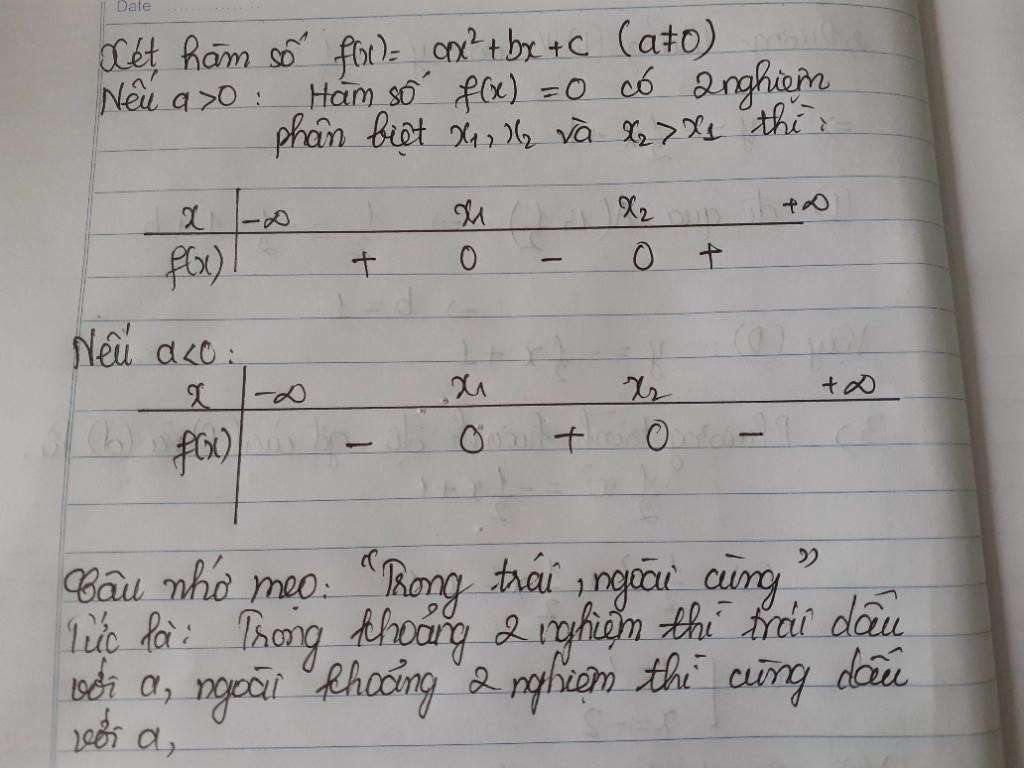 Date
Xét hàm số f(x) = ax² + bx + c (a≠0)
Nếu a>0 : Hàm số f(x) = 0 có 2 nghiệm
phân biệt x₁, x₂ và x₂ > x₁ thì :
x -∞ x₁ x₂ +∞
f(x) + 0 - 0 +
Nếu a<0 :
x -∞ x₁ x₂ +∞
f(x) - 0 + 0 -
Câu nhớ mẹo: "Trong trái, ngoài cùng"
Tức là: Trong khoảng 2 nghiệm thì trái dấu
với a, ngoài khoảng 2 nghiệm thì cùng dấu
với a,